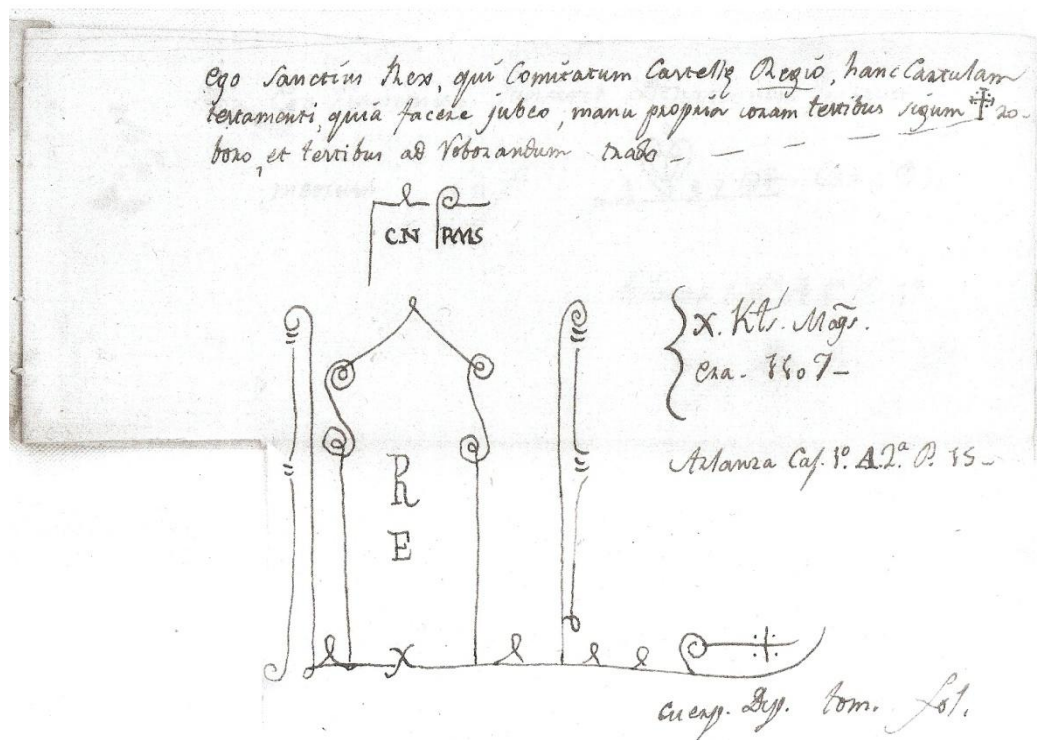 Ego Sanctius Rex, qui Comitatum Castellę Regió, hanc Cartulam
testamenti, quia facere jubeo, manu propria coram testibus signum ro-
boro, et testibus ad roborandum trado
CN RMS
R
E
X
X. Kls. Mags.
era. 1107
Arlanza Caj. 1º. A.2ª. P. 15
Cuerp. Dip. tom. fol.